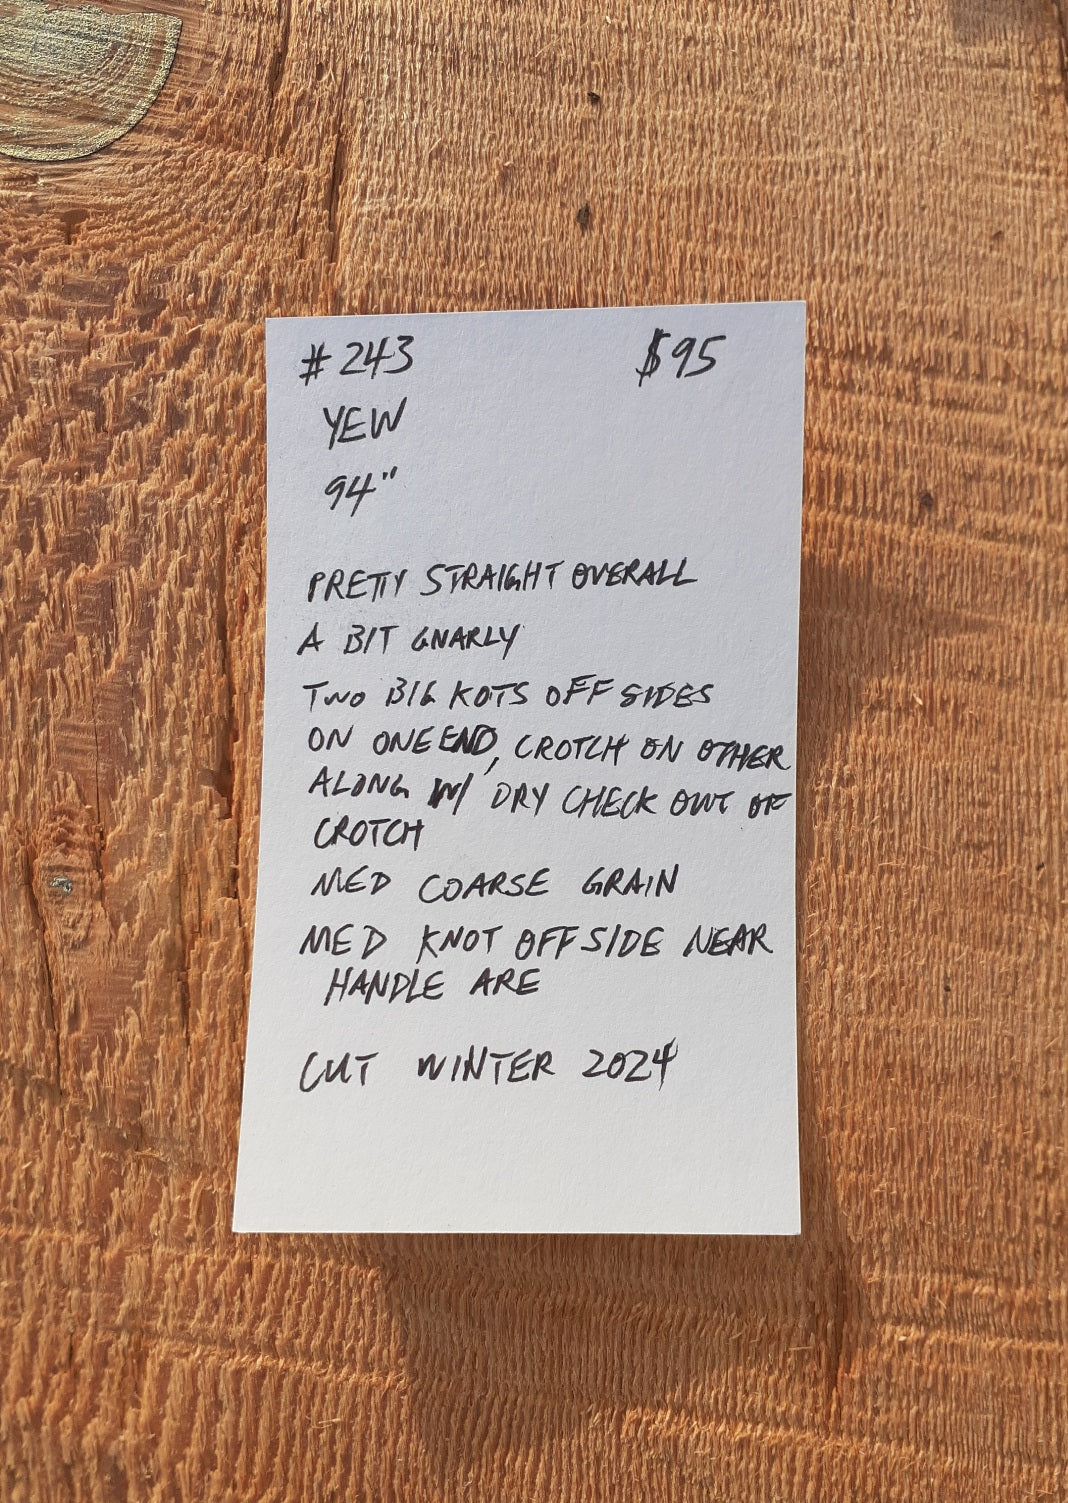 #243 $95
YEW
94"
PRETTY STRAIGHT OVERALL
A BIT GNARLY
TWO BIG KOTS OFF SIDES
ON ONE END, CROTCH ON OTHER
ALONG W/ DRY CHECK OUT OF
CROTCH
MED COARSE GRAIN
MED KNOT OFF SIDE NEAR
HANDLE ARE
CUT WINTER 2024